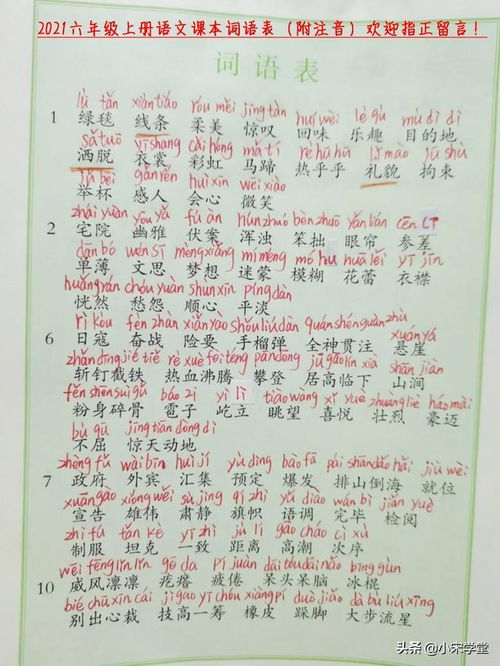 2021六年级上册语文课本词语表（附注音）欢迎指正留言！
词语表
lǜ tǎn xiàn tiáo róu měi jīng tàn huí wèi lè qù mù dì dì
1 绿毯 线条 柔美 惊叹 回味 乐趣 目的地
sǎ tuō yī shang cǎi hóng mǎ tí rè hū hū lǐ mào jū shù
洒脱 衣裳 彩虹 马蹄 热乎乎 礼貌 拘束
jǔ bēi gǎn rén huì xīn wēi xiào
举杯 感人 会心 微笑
zhái yuàn yōu yǎ fú àn hún zhuó bèn zhuō yǎn lián cēn cī
2 宅院 幽雅 伏案 浑浊 笨拙 眼帘 参差
dān bó wén sī mèng xiǎng mí méng mó hu huā lěi yī jīn
单薄 文思 梦想 迷蒙 模糊 花蕾 衣襟
huǎng rán chóu yuàn shùn xīn píng dàn
恍然 愁怨 顺心 平淡
rì kòu fèn zhàn xiǎn yào shǒu liú dàn quán shén guàn zhù xuán yá
6 日寇 奋战 险要 手榴弹 全神贯注 悬崖
zhǎn dīng jié tiě rè xuè fèi téng pān dēng jū gāo lín xià shān jiàn
斩钉截铁 热血沸腾 攀登 居高临下 山涧
fěn shēn suì gǔ báo zi yì lì tiào wàng xǐ yuè zhuàng liè háo mài
粉身碎骨 雹子 屹立 眺望 喜悦 壮烈 豪迈
bù qū jīng tiān dòng dì
不屈 惊天动地
zhèng fǔ wài bīn huì jí yù dìng bào fā pái shān dǎo hǎi jiù wèi
7 政府 外宾 汇集 预定 爆发 排山倒海 就位
xuān gào xióng wěi sù jìng qí zhì yǔ diào wán bì jiǎn yuè
宣告 雄伟 肃静 旗帜 语调 完毕 检阅
zhì fú tǎn kè yī zhì jù lí gāo cháo cì xù
制服 坦克 一致 距离 高潮 次序
wēi fēng lǐn lǐn gē da pí juàn dāi tóu dāi nǎo bīng gùn
10 威风凛凛 疙瘩 疲倦 呆头呆脑 冰棍
bié chū xīn cái jì gāo yī chóu xiàng pí duò jiǎo dà bù liú xīng
别出心裁 技高一筹 橡皮 跺脚 大步流星
头条 @小宋学堂